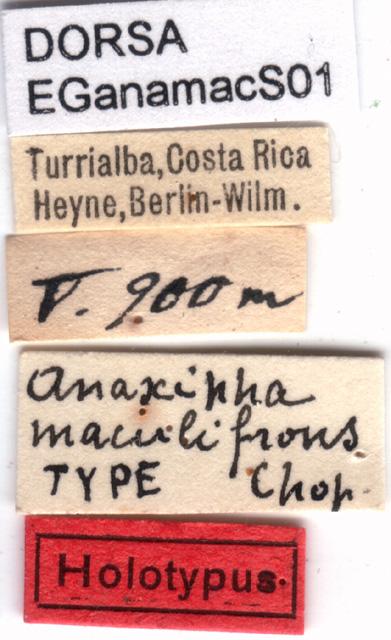 DORSA
EGanamacS01
Turrialba, Costa Rica
Heyne, Berlin-Wilm.
V. 900 m
Anaxipha
maculifrons
TYPE Chop.
Holotypus.